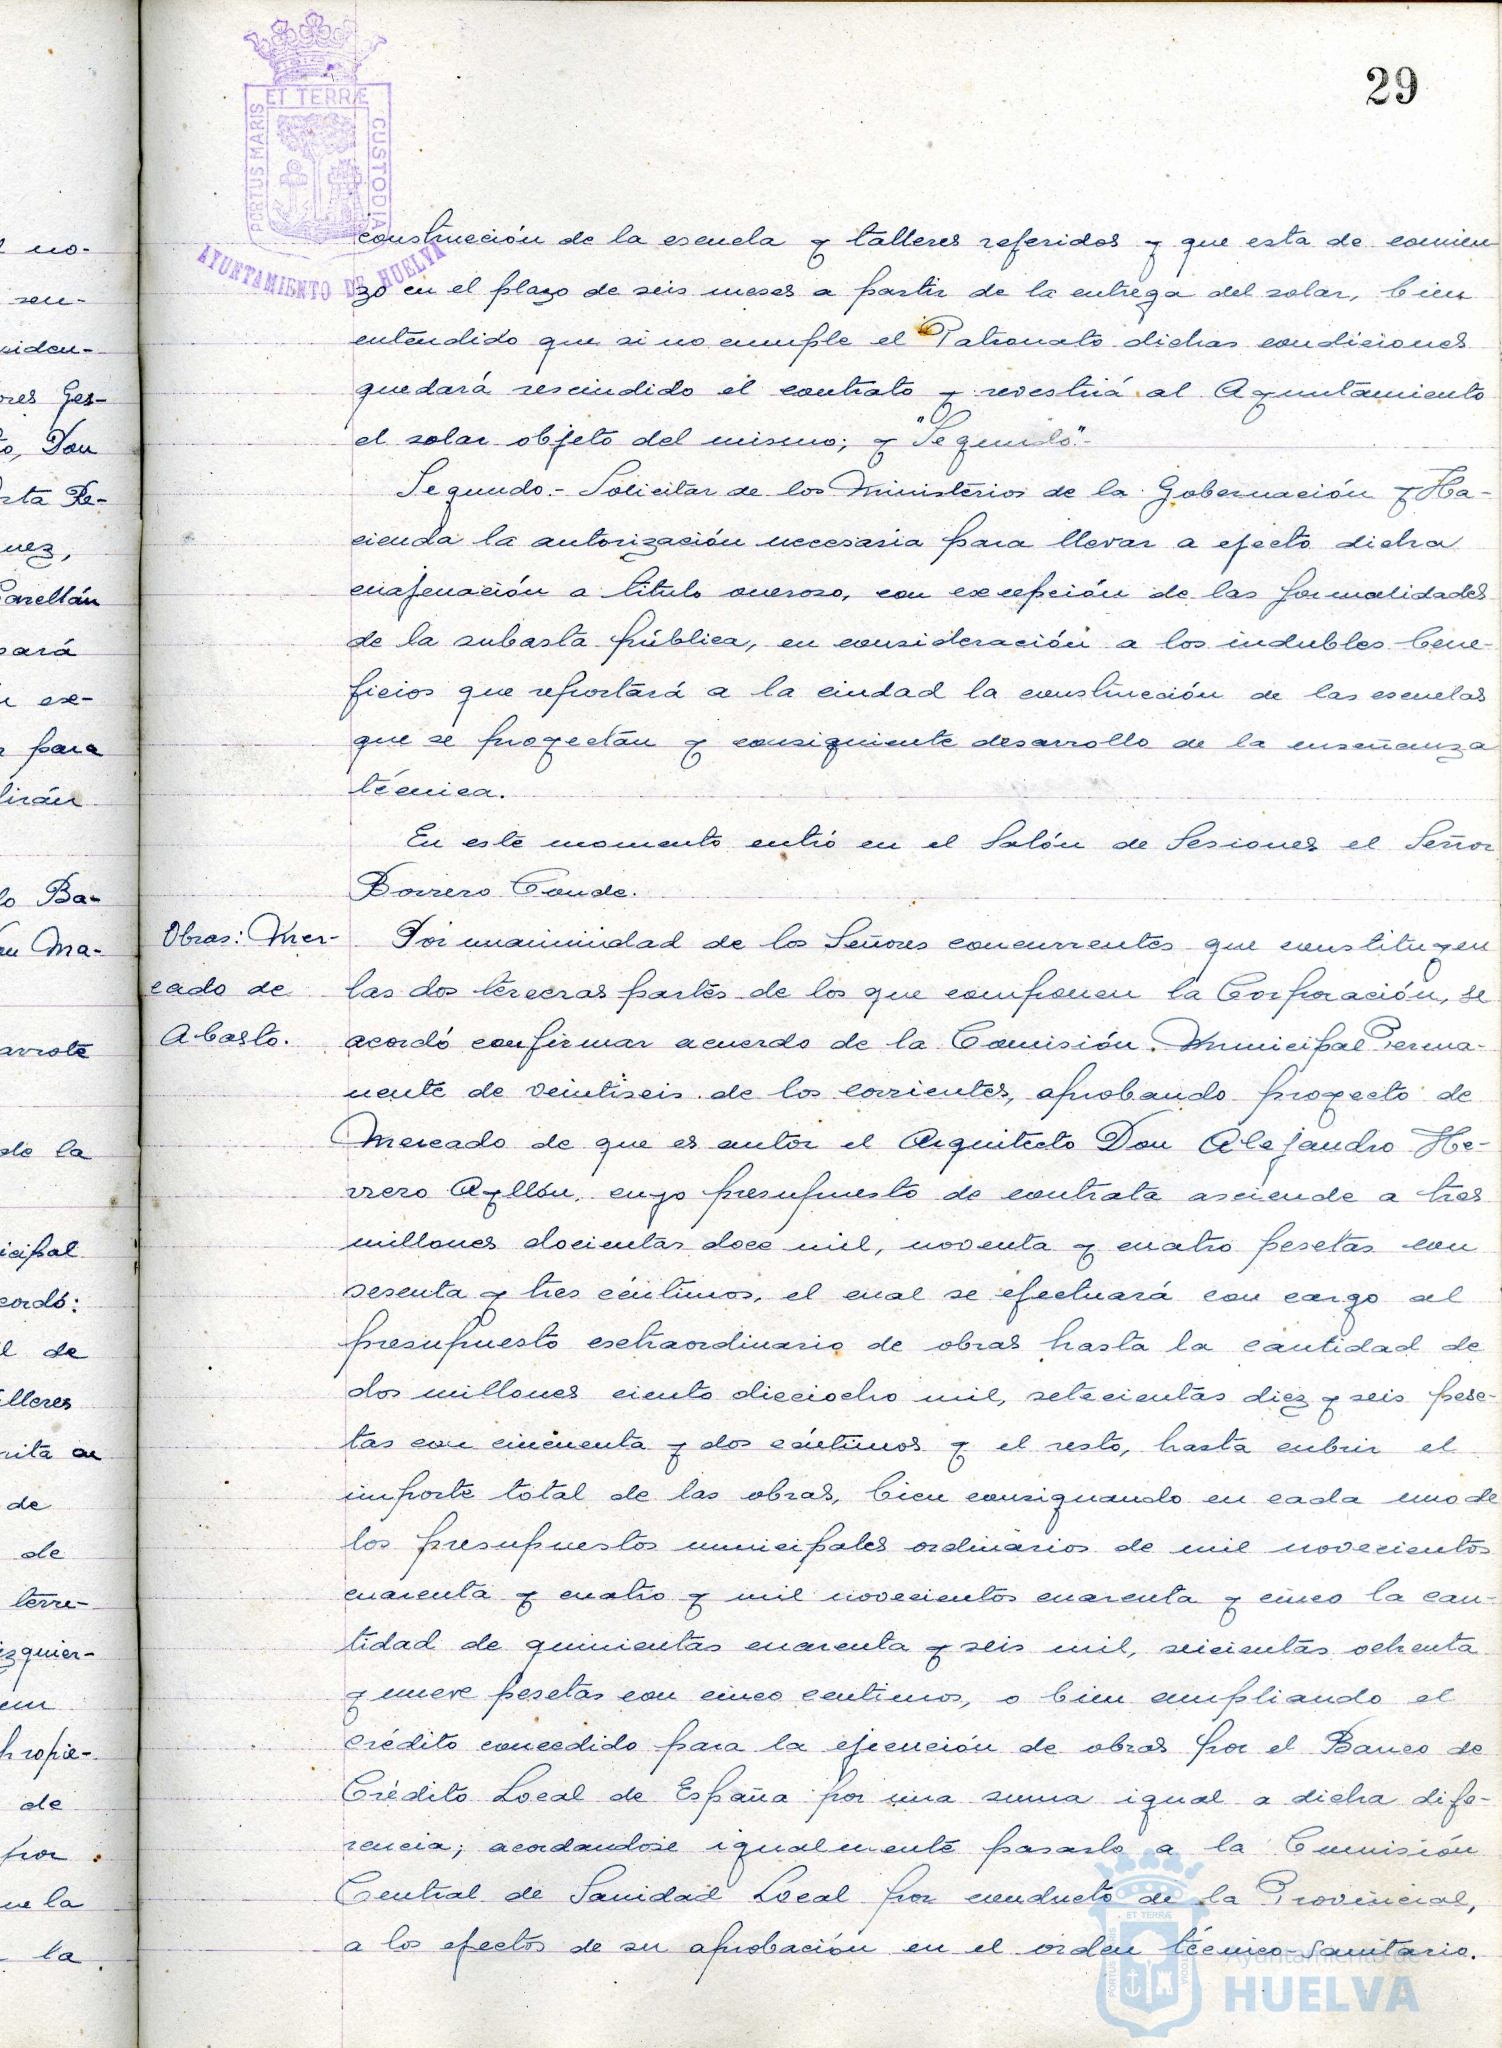 29
PORTUS MARIS ET TERRÆ CUSTODIA
AYUNTAMIENTO DE HUELVA
construcción de la escuela y talleres referidos y que esta de comien
zo en el plazo de seis meses a partir de la entrega del solar, bien
entendido que si no cumple el Patronato dichas condiciones
quedará rescindido el contrato y revestirá al Ayuntamiento
el solar objeto del mismo; y "Segundo"-
Segundo.- Solicitar de los Ministerios de la Gobernación y Ha-
cienda la autorización necesaria para llevar a efecto dicha
enajenación a titulo oneroso, con excepción de las formalidades
de la subasta pública, en consideración a los indubles bene-
ficios que reportará a la ciudad la construcción de las escuelas
que se proyectán y consiguiente desarrollo de la enseñanza
técnica.
En este momento entró en el Salón de Sesiones el Señor
Borrero Conde.
Obras: Mer-
cado de
Abasto.
Por unanimidad de los Señores concurrentes que constituyen
las dos terceras partes de los que componen la Corporación, se
acordó confirmar acuerdo de la Comisión Municipal Perma-
nente de veintiseis de los corrientes, aprobando proyecto de
Mercado de que es autor el Arquitecto Don Alejandro He-
rrero Ayllón, cuyo presupuesto de contrata asciende a tres
millones docientas doce mil, noventa y cuatro pesetas con
sesenta y tres céntimos, el cual se efectuará con cargo al
presupuesto extraordinario de obras hasta la cantidad de
dos millones ciento dieciocho mil, setecientas diez y seis pese-
tas con cincuenta y dos céntimos y el resto, hasta cubrir el
importe total de las obras, bien consignando en cada uno de
los presupuestos municipales ordinarios de mil novecientos
cuarenta y cuatro y mil novecientos cuarenta y cinco la can-
tidad de quinientas cuarenta y seis mil, seicientas ochenta
y nueve pesetas con cinco centimos, o bien ampliando el
crédito concedido para la ejecución de obras por el Banco de
Crédito Local de España por una suma igual a dicha dife-
rencia; acordandose igualmente pasarlo a la Comisión
Central de Sanidad Local por conducto de la Provincial,
a los efectos de su aprobación en el orden técnico-sanitario.
Ayuntamiento de
HUELVA